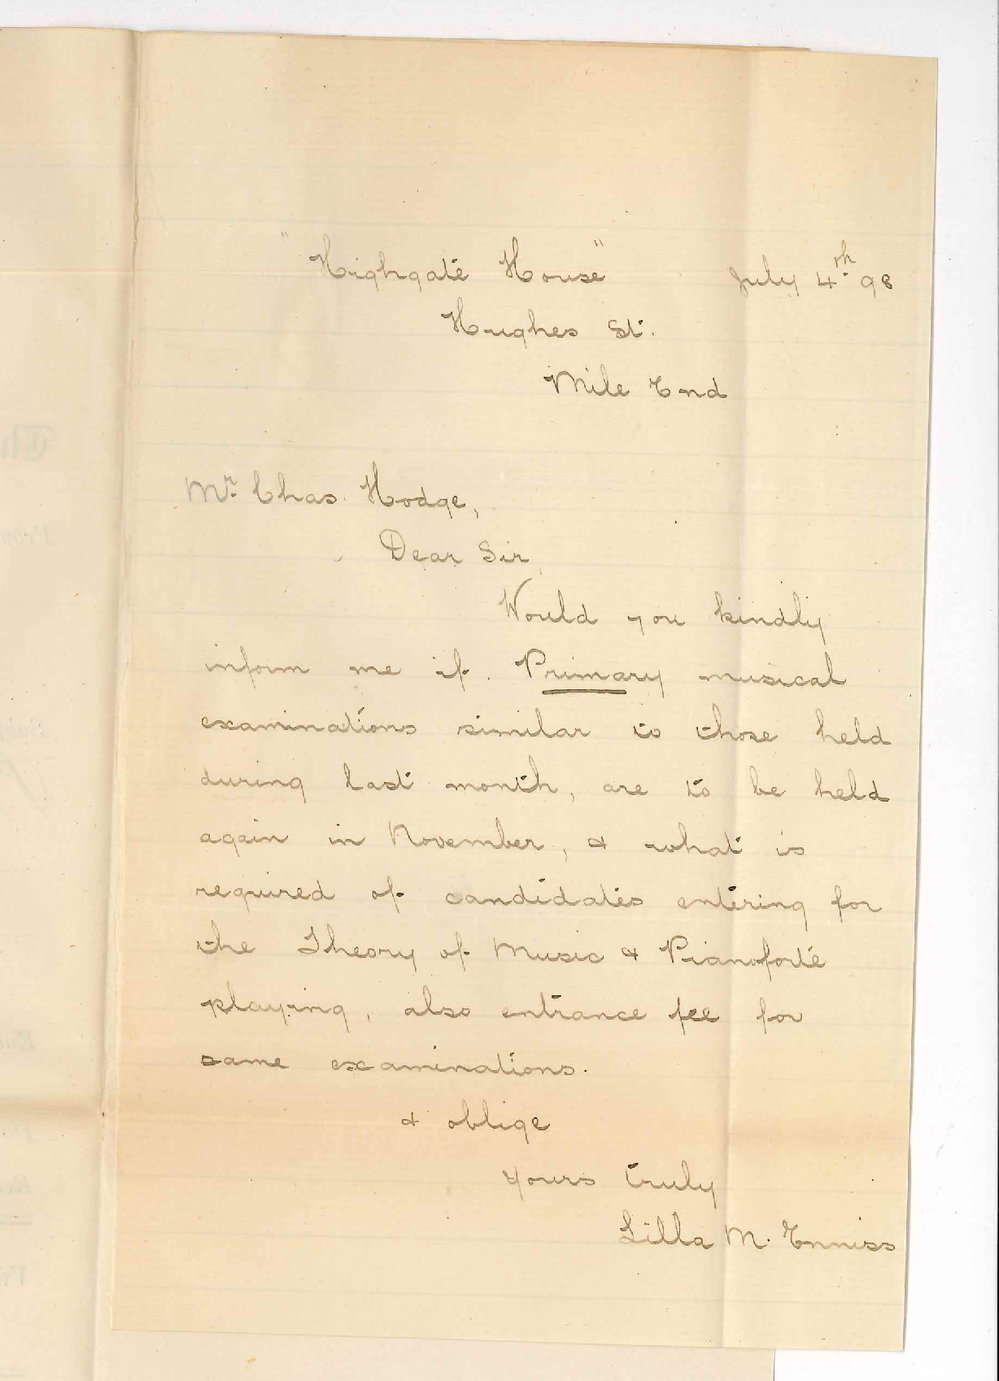 "Highgate House" July 4th 98
Hughes St.
Mile End
Mr. Chas. Hodge,
Dear Sir,
Would you kindly
inform me if Primary musical
examinations similar to those held
during last month, are to be held
again in November, & what is
required of candidates entering for
the Theory of Music & Pianoforte
playing, also entrance fee for
same examinations.
& oblige
Yours truly
Lilla M. Enniss